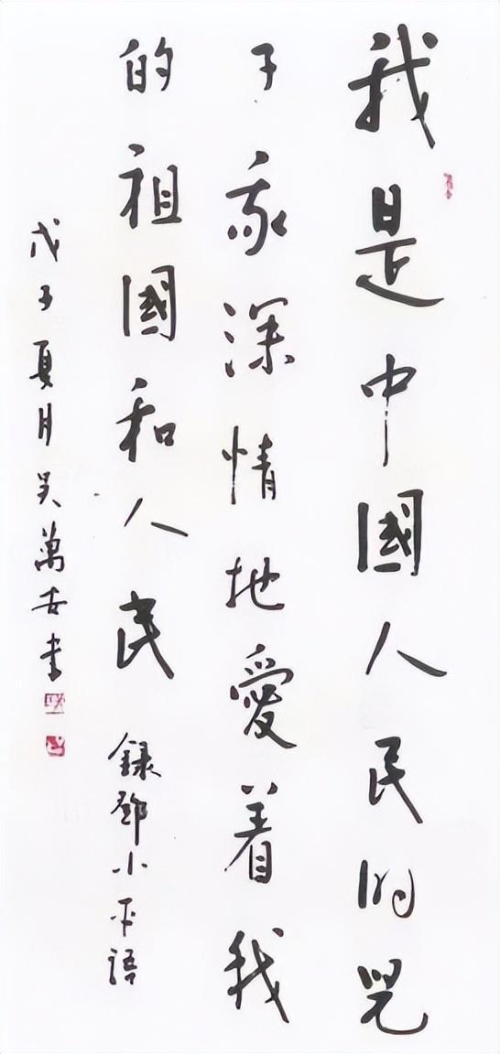 我是中國人民的兒
子我深情地愛着我
的祖國和人民
錄鄧小平語
戊子夏月吴萬安書